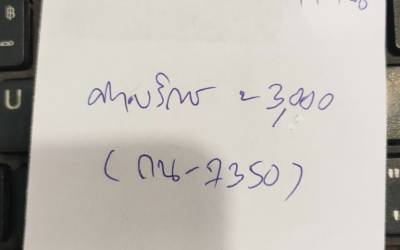 ค่าบริการ ~ 3,000
(กน-7350)
U